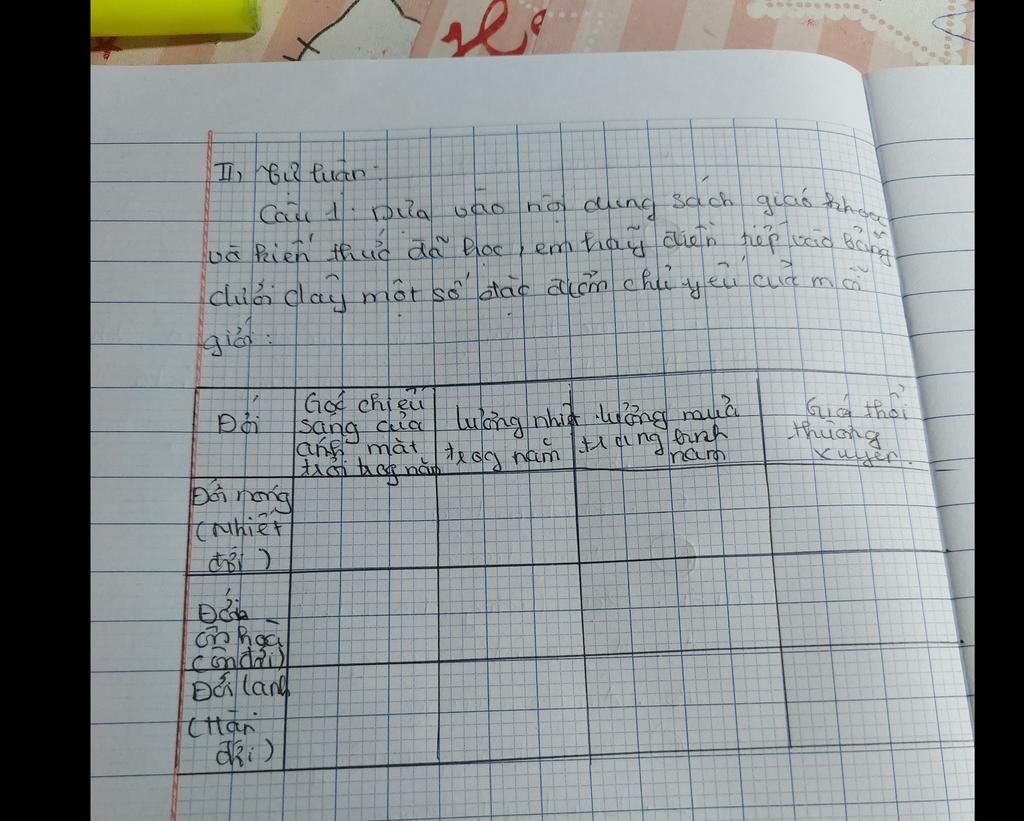 II, Tự luận:
Câu 1: Dựa vào nội dung sách giáo khoa
và kiến thức đã học, em hãy điền tiếp vào bảng
dưới đây một số đặc điểm chủ yếu của mỗi
giới:
Đới
Góc chiếu
sáng của
ánh mặt
trời trog năm
lượng nhiệt
trog năm
lượng mưa
trung bình
năm
Gió thổi
thường
xuyên.
Đới nóng
(Nhiệt
đới)
Đới
ôn hoà
(ôn đới)
Đới lạnh
(Hàn
đới)